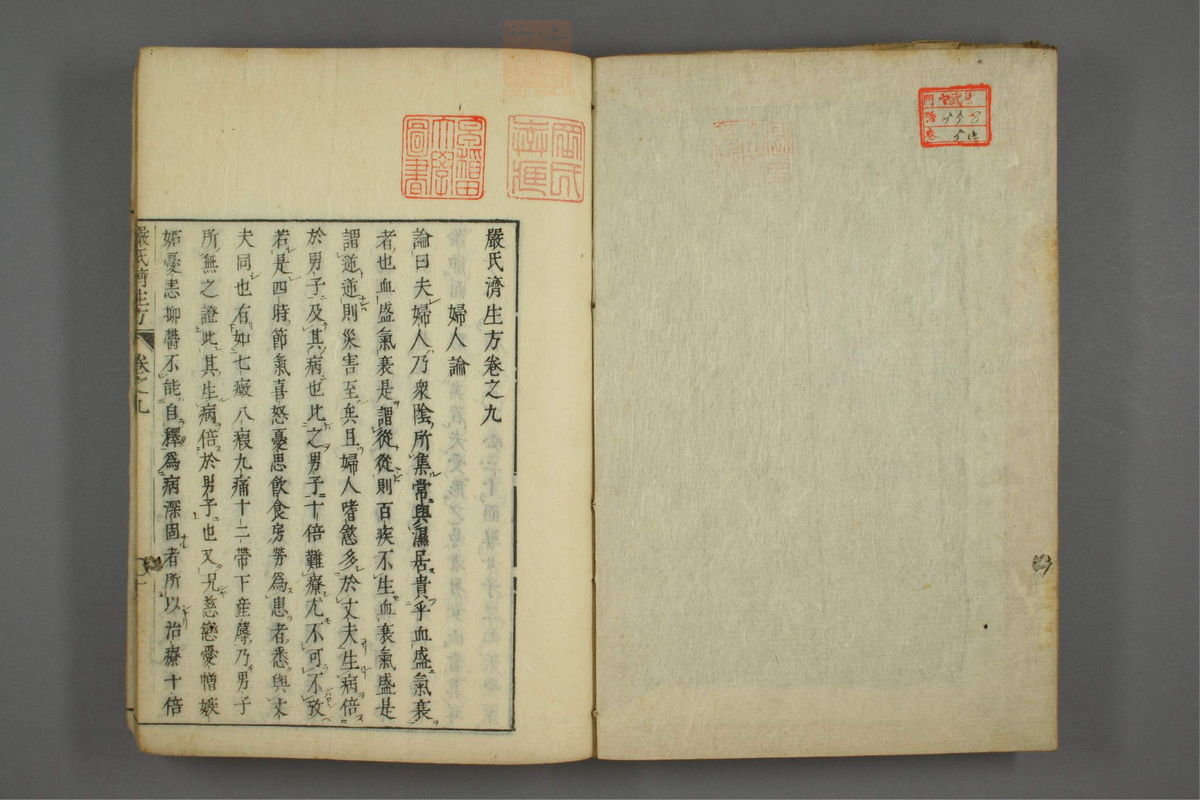 嚴氏濟生方卷之九
婦人論
論曰夫婦人乃衆陰所集常與濕居貴乎血盛氣衰
者也血盛氣衰是謂從從則百疾不生血衰氣盛是
謂逆逆則災害至矣且婦人嗜慾多於丈夫生病倍
於男子及其病也比之男子十倍難療尤不可不攷
若是四時節氣喜怒憂思飲食房勞爲患者悉與丈
夫同也有如七癥八瘕九痛十二帶下産蓐乃男子
所無之證此其生病倍於男子也又況慈戀愛憎嫉
妬憂恚抑鬱不能自釋爲病深固者所以治療十倍
嚴氏濟生方 卷之九 一
圖書